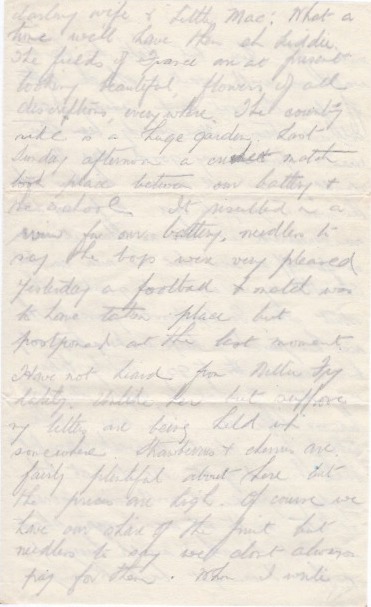 darling wife & "Little Mac". What a
time we'll have then eh kiddie.
The fields of France are at present
looking beautiful, flowers of all
descriptions everywhere. The country
side is a huge garden. Last
Sunday afternoon a cricket match
took place between our battery &
the school. It resulted in a
win for our battery, needless to
say the boys were very pleased
Yesterday a football match was
to have taken place but
postponed at the last moment.
Have not heard from Nellie
lately unlike her but suppose
my letters are being held up
somewhere. Strawberries & cherries are
fairly plentiful about here but
the prices are high. Of course we
have our share of the fruit but
needless to say we don't always
pay for them. When I write